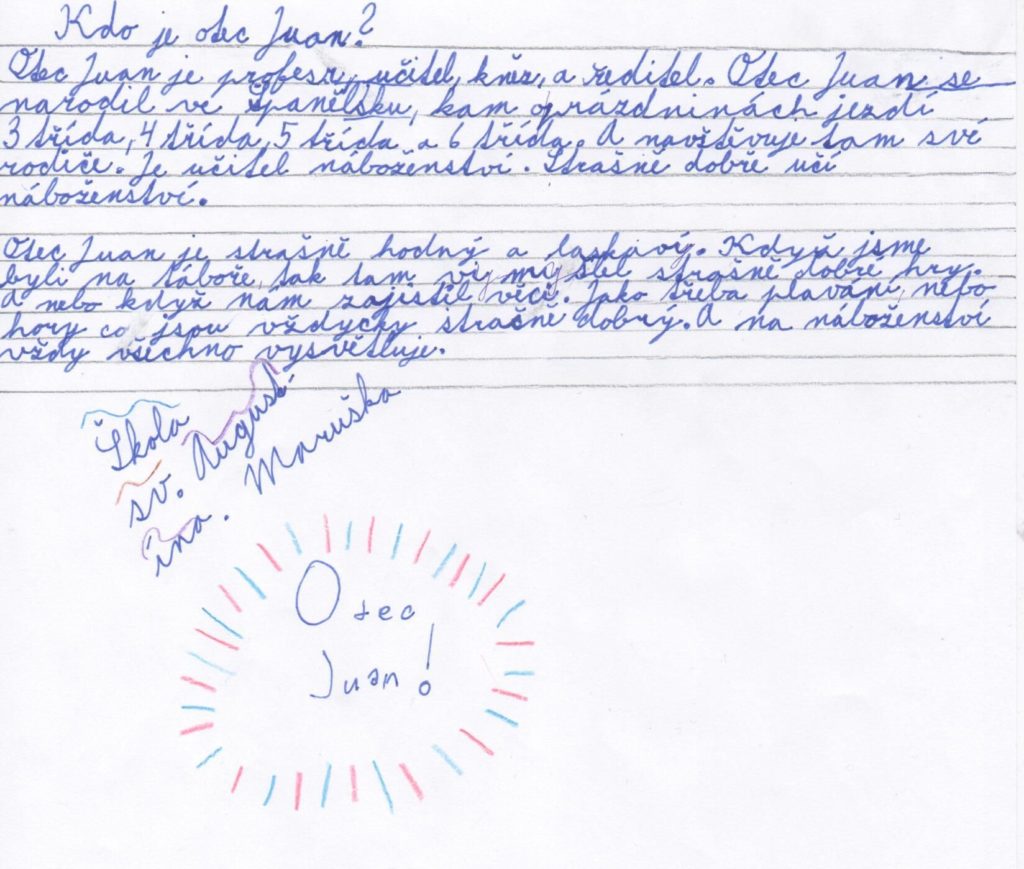 Kdo je otec Juan?
Otec Juan je profesr, učitel, kněz, a ředitel. Otec Juan se
narodil ve Španělsku, kam o prázdninách jezdí
3 třída, 4 třída, 5 třída a 6 třída. A navštěvuje tam své
rodiče. Je učitel náboženství. Strašně dobře učí
náboženství.
Otec Juan je strašně hodný a laskavý. Když jsme
byli na táboře, tak tam vymyslel strašně dobré hry.
A nebo když nám zajistil věci. Jako třeba plavání, nebo
hory co jsou vždycky strašně dobrý. A na náboženství
vždy všechno vysvětluje.
Škola
sv. August-
ina. Maruška
Otec
Juan!